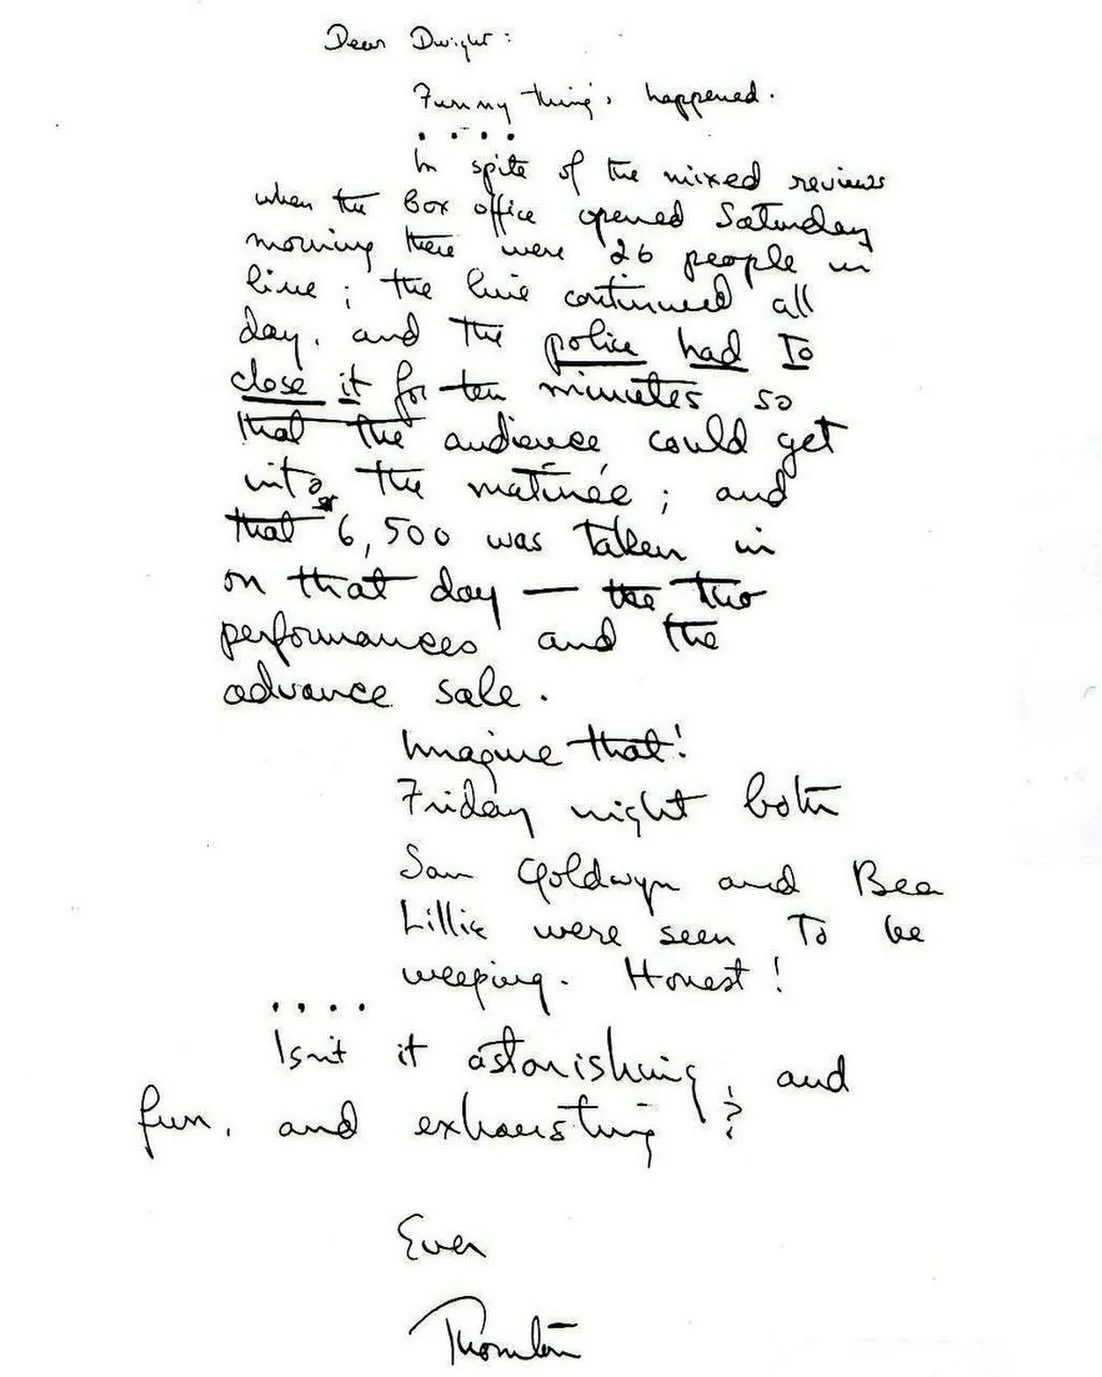 Dear Dwight:
Funny things happened.
. . . .
In spite of the mixed reviews
when the box office opened Saturday
morning there were 26 people in
line; the line continued all
day, and the police had to
close it for ten minutes so
that the audience could get
into the matinée; and
that $6,500 was taken in
on that day — the two
performances and the
advance sale.
Imagine that!
Friday night both
Sam Goldwyn and Bea
Lillie were seen to be
weeping. Honest!
. . . .
Isn't it astonishing, and
fun, and exhausting?
Ever
Thornton